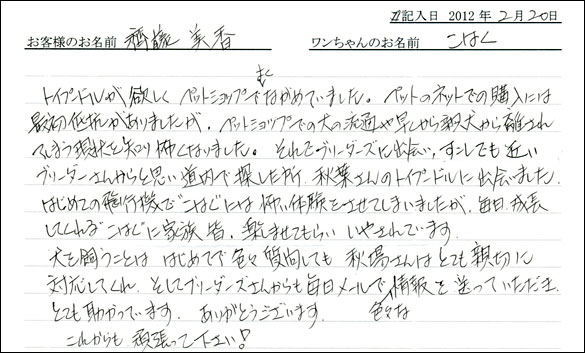 記入日 2012年2月20日
お客様のお名前 齊藤 美香 ワンちゃんのお名前 こはく
トイプードルが欲しく ペットショップでよくながめていました。ペットのネットでの購入には
最初低抗がありましたが、ペットショップでの犬の流通や早くから親犬から離され
てしまう現状を知り怖くなりました。それでブリーダーズに出会い、すこしでも近い
ブリーダーさんからと思い道内で探した所、秋葉さんのトイプードルに出会いました。
はじめての飛行機で こはくには怖い体験をさせてしまいましたが、毎日、成長
してくれる こはくに家族皆、楽しませてもらい いやされています。
犬を飼うことは はじめてで色々質問しても 秋場さんは とても親切に
対応してくれ、そしてブリーダーズさんからも毎日メールで色々な情報を送っていただき
とても助かっています。ありがとうございます。
これからも 頑張って下さい!